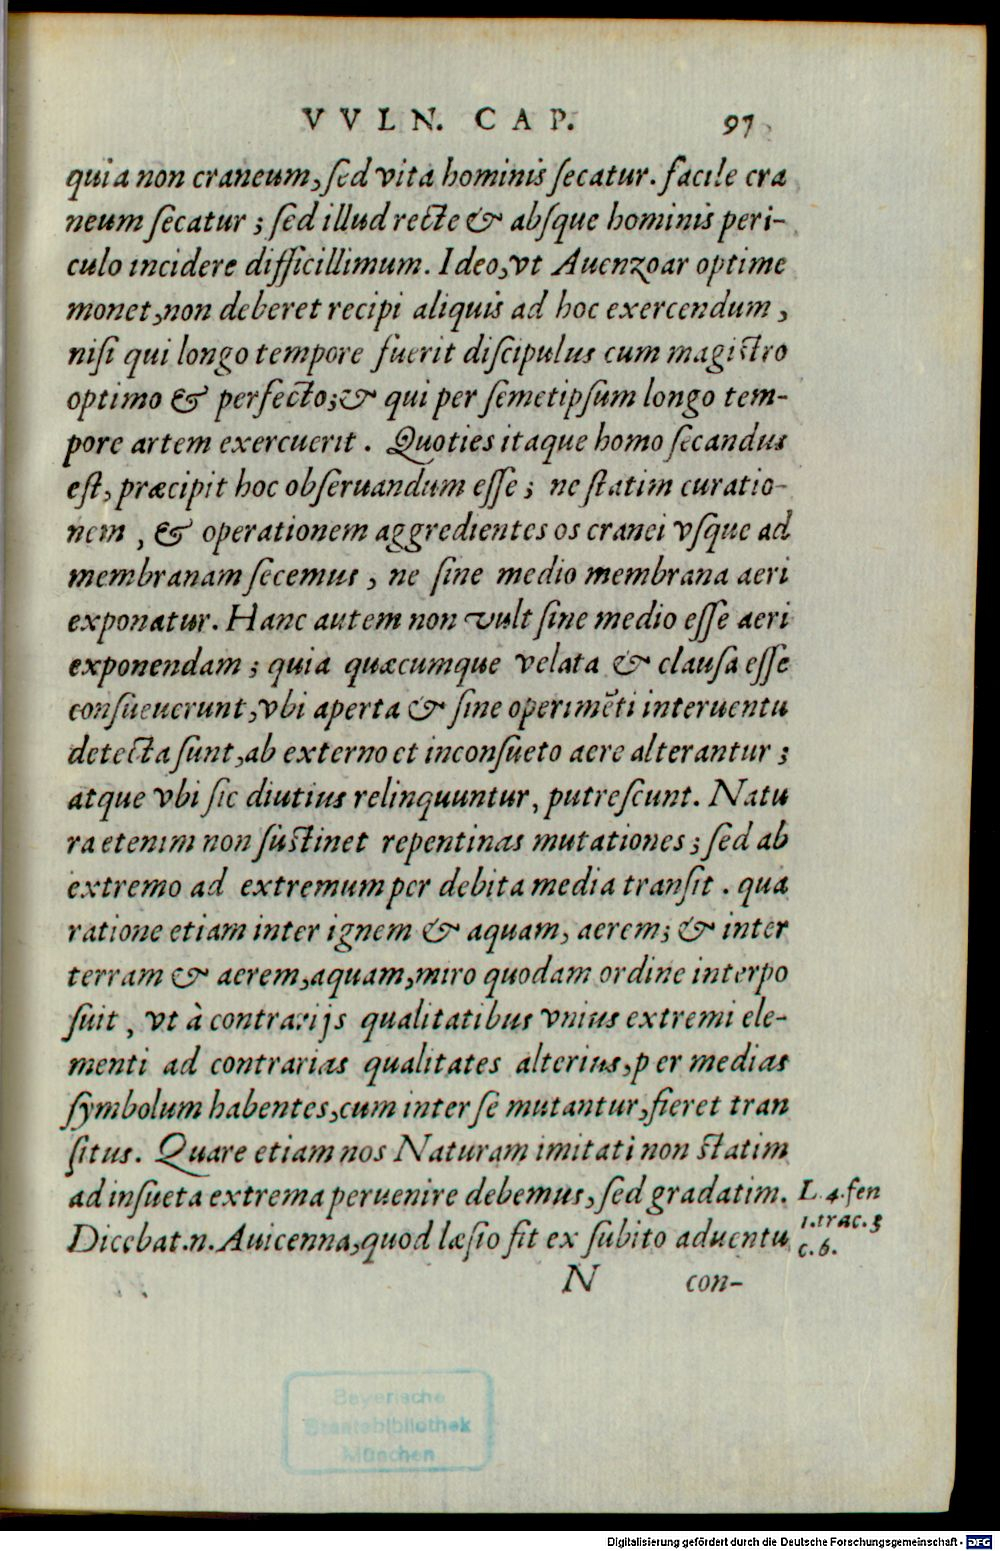 VVLN. CAP. 97
quia non craneum, sed vita hominis secatur. facile cra
neum secatur; sed illud recte & absque hominis peri-
culo incidere difficillimum. Ideo, vt Auenzoar optime
monet, non deberet recipi aliquis ad hoc exercendum,
nisi qui longo tempore fuerit discipulus cum magistro
optimo & perfecto; & qui per semetipsum longo tem-
pore artem exercuerit. Quoties itaque homo secandus
est, præcipit hoc obseruandum esse; ne statim curatio-
nem, & operationem aggredientes os cranei vsque ad
membranam secemus, ne sine medio membrana aeri
exponatur. Hanc autem non vult sine medio esse aeri
exponendam; quia quæcumque velata & clausa esse
consueuerunt, vbi aperta & sine operimēti interuentu
detecta sunt, ab externo et inconsueto aere alterantur;
atque vbi sic diutius relinquuntur, putrescunt. Natu
ra etenim non sustinet repentinas mutationes; sed ab
extremo ad extremum per debita media transit. qua
ratione etiam inter ignem & aquam, aerem; & inter
terram & aerem, aquam, miro quodam ordine interpo
suit, vt à contrarijs qualitatibus vnius extremi ele-
menti ad contrarias qualitates alterius, per medias
symbolum habentes, cum inter se mutantur, fieret tran
situs. Quare etiam nos Naturam imitati non statim
ad insueta extrema peruenire debemus, sed gradatim.
L. 4. fen
1. trac. 3
c. 6.
Dicebat.n. Auicenna, quod læsio fit ex subito aduentu
N con-
Bayerische
Staatsbibliothek
München
Digitalisierung gefördert durch die Deutsche Forschungsgemeinschaft - DFG